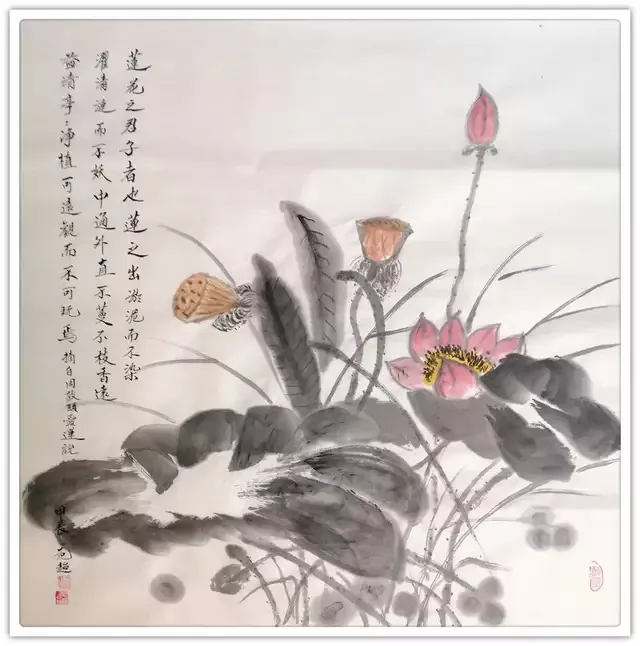 蓮花之君子者也蓮之出淤泥而不染
濯清漣而不妖中通外直不蔓不枝香遠
益清亭〻淨植可遠觀而不可玩焉 摘自周敦頤愛蓮説
甲辰 超